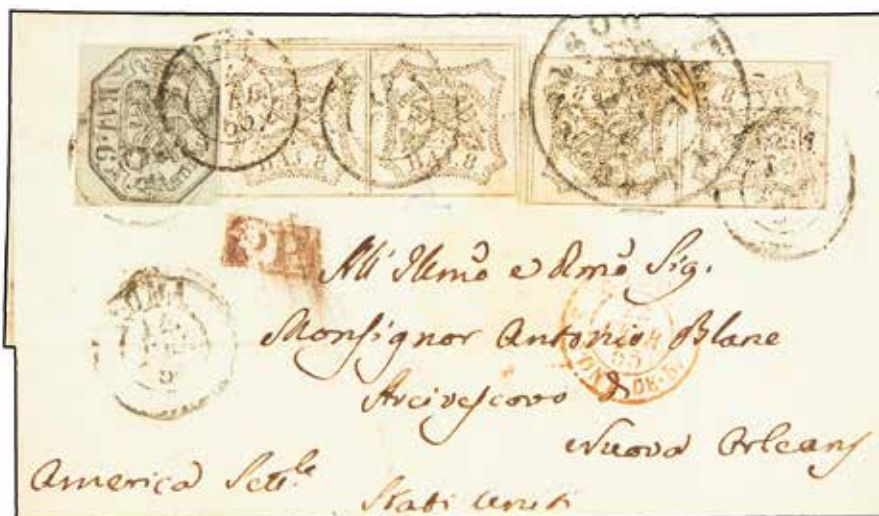 BAJ. 6
BAJ. 8
BAJ. 8
BAJ. 8
BAJ. 8
PD
All' Illmo e Rmo Sig.
Monsignor Antonio Blanc
Arcivescovo di
Nuova Orleans
America Settle
Stati Uniti
ROMA